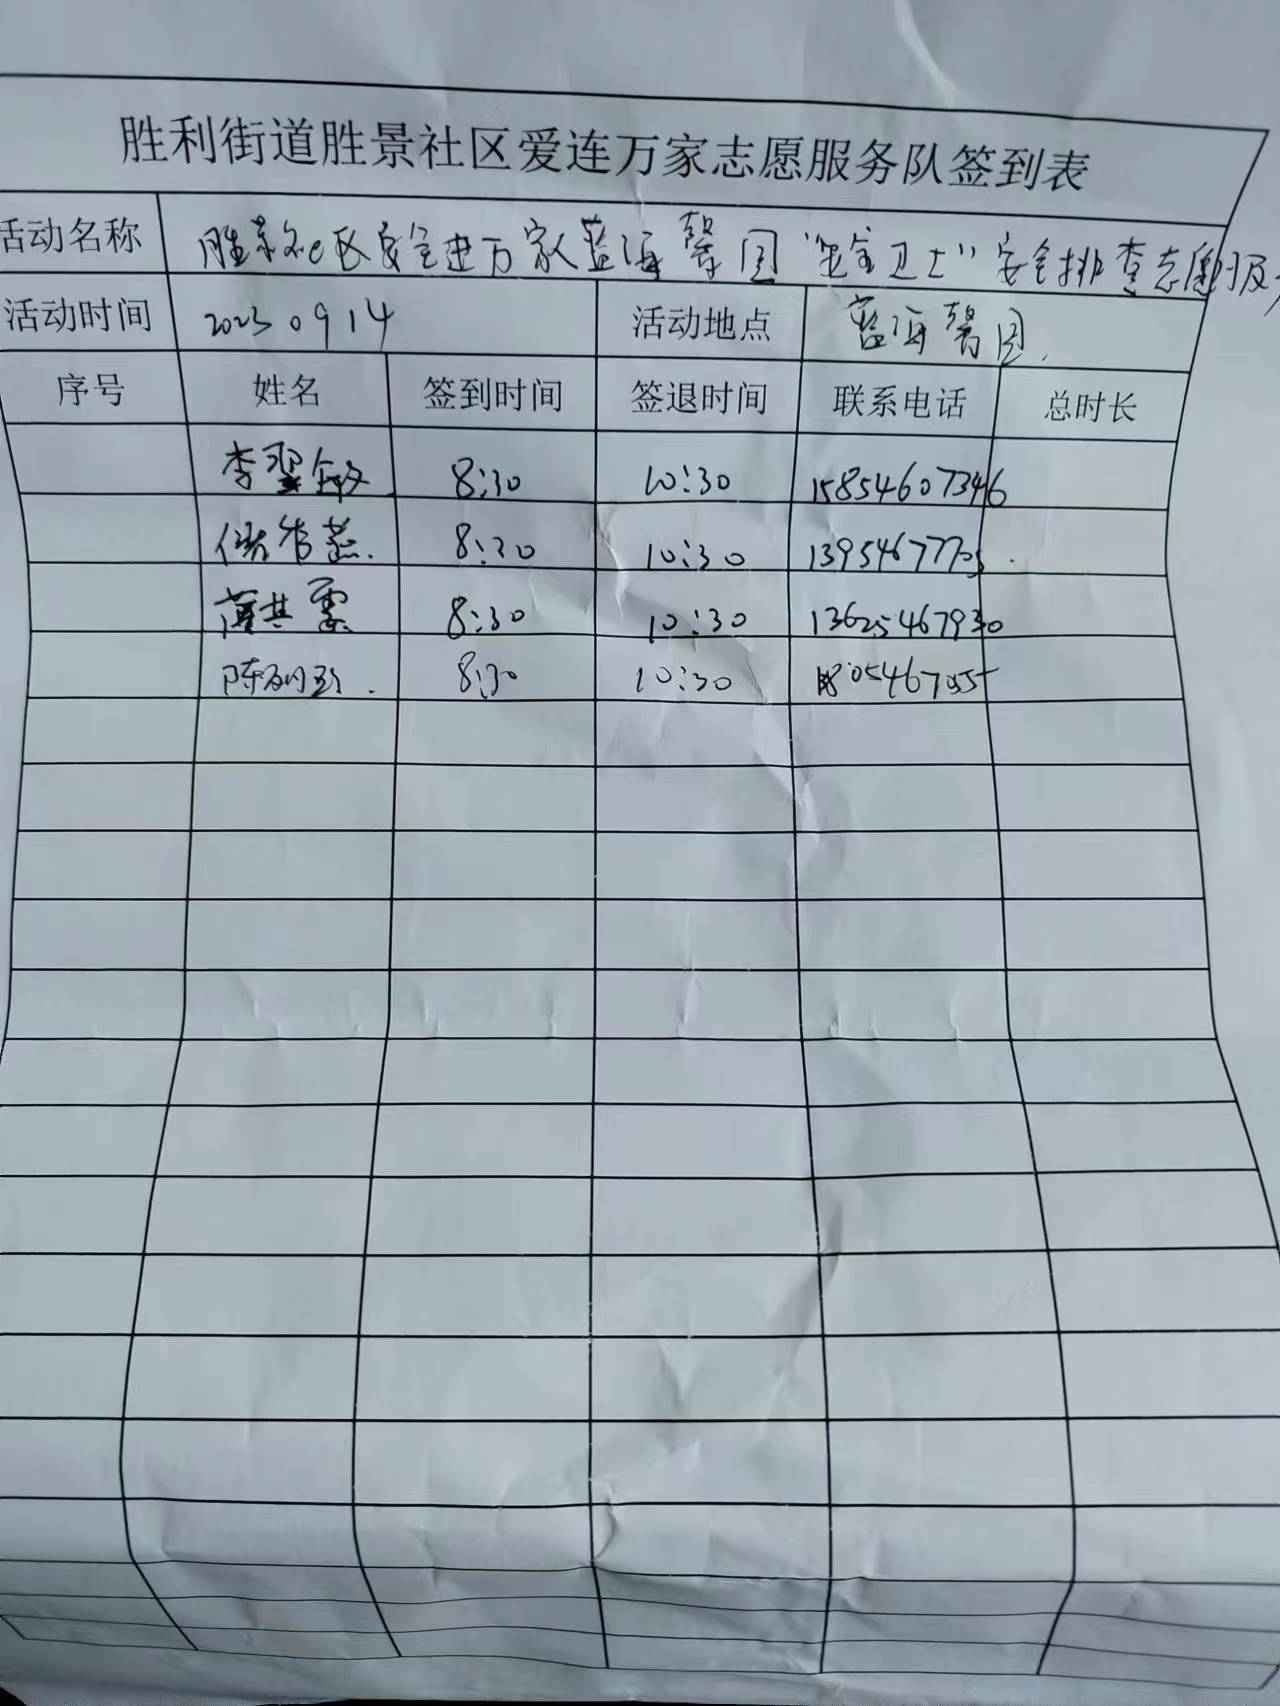 胜利街道胜景社区爱连万家志愿服务队签到表
活动名称 胜景社区安全进万家蓝海馨园“安全卫士”安全排查志愿服
活动时间 20230914 活动地点 蓝海馨园
序号 姓名 签到时间 签退时间 联系电话 总时长
李翠敏 8:30 10:30 15854607346
8:30 10:30
薄其霞 8:30 10:30 13625467930
8:30 10:30